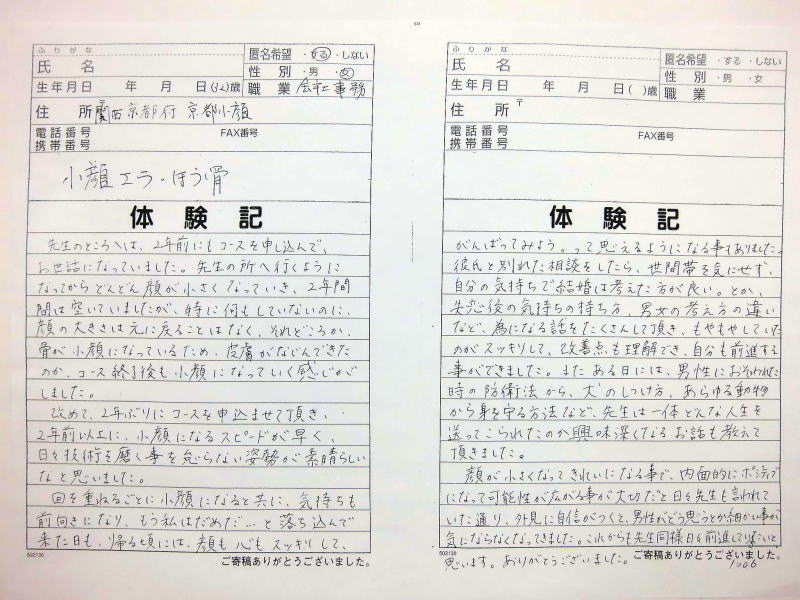 ふりがな
氏 名
匿名希望 ・する ・しない
性 別 ・男 ・女
生年月日 年 月 日(32)歳
職 業 会社事務
住 所 関西京都府 京都小顔
電話番号 FAX番号
携帯番号
小顔エラ・ほう骨
体 験 記
先生のところへは、2年前にもコースを申し込んで、
お世話になっていました。先生の所へ行くように
なってからどんどん顔が小さくなっていき、2年間
間は空いていましたが、特に何もしていないのに、
顔の大きさは元に戻ることはなく、それどころか、
骨が小顔になっているため、皮膚がなじんできた
のか、コース終了後も小顔になっていく感じがが
しました。
改めて、2年ぶりにコースを申込ませて頂き、
2年前以上に、小顔になるスピードが早く、
日々技術を磨く事を怠らない姿勢が素晴らしい
なと思いました。
回を重ねるごとに小顔になると共に、気持ちも
前向きになり、もう私はだめだ…と落ち込んで
来た日も、帰る頃には、顔も心もスッキリして、
502130
ご寄稿ありがとうございました。
ふりがな
氏 名
匿名希望 ・する ・しない
性 別 ・男 ・女
生年月日 年 月 日( )歳
職 業
住 所 〒
電話番号 FAX番号
携帯番号
体 験 記
がんばってみよう。って思えるようになる事もありました。
彼氏と別れた相談をしたら、世間帯を気にせず、
自分の気持ちで結婚は考えた方が良い。とか、
失恋後の気持ちの持ち方、男女の考え方の違い
など、為になる話をたくさんして頂き、もやもやしていた
のがスッキリして、改善点も理解でき、自分も前進する
事ができました。またある日には、男性におそわれた
時の防衛法から、犬のしつけ方、あらゆる動物
から身を守る方法など、先生は一体どんな人生を
送ってこられたのか興味深くなるお話も教えて
頂きました。
顔が小さくなってきれいになる事で、内面的にポジティブ
になって可能性が広がる事が大切だと日々先生も言われて
いた通り、外見に自信がつくと、男性がどう思うとか細かい事が
気にならなくなってきました。これからも先生同様日々前進して行きたいと
502130
ご寄稿ありがとうございました。
思います。ありがとうございました。
1006